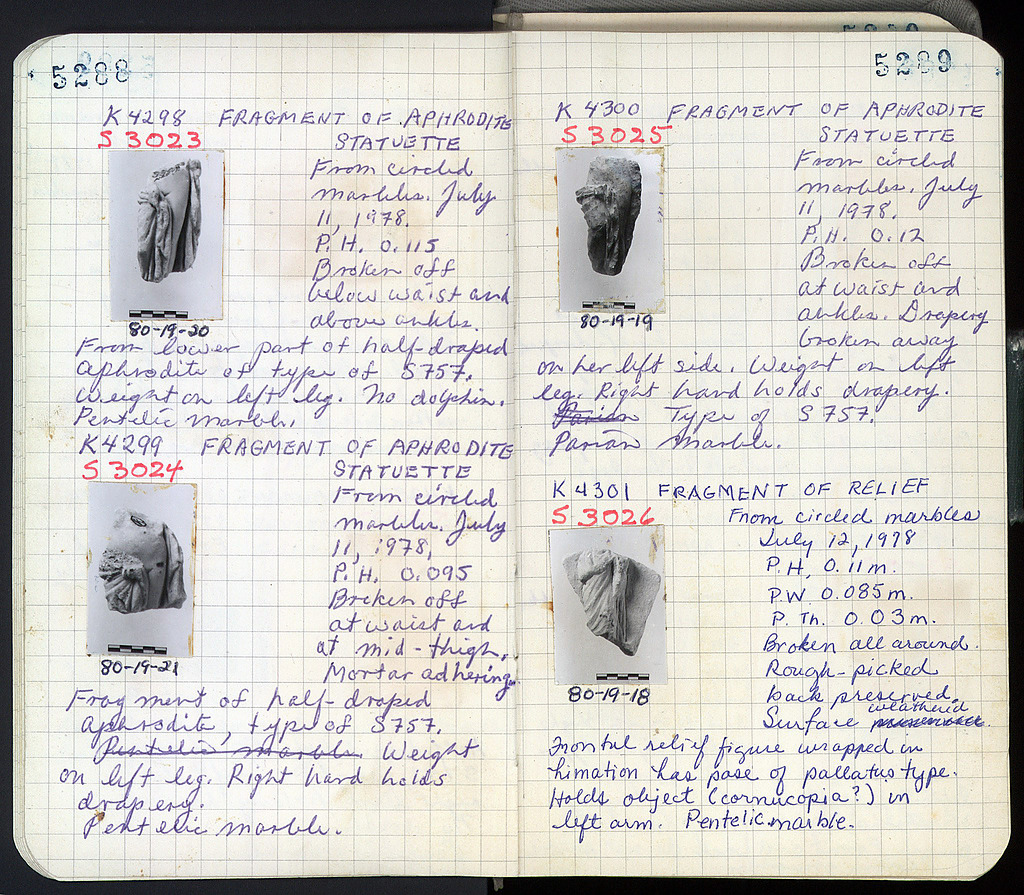 5288
K 4298 FRAGMENT OF APHRODITE
S 3023 STATUETTE
From circled
marbles. July
11, 1978.
P.H. 0.115
Broken off
below waist and
above ankles.
80-19-20
From lower part of half-draped
Aphrodite of type of S757.
Weight on left leg. No dolphin.
Pentelic marble.
K4299 FRAGMENT OF APHRODITE
S 3024 STATUETTE
From circled
marbles. July
11, 1978.
P.H. 0.095
Broken off
at waist and
at mid-thigh.
Mortar adhering.
80-19-21
Fragment of half-draped
Aphrodite, type of S757.
Pentelic marble. Weight
on left leg. Right hand holds
drapery.
Pentelic marble.
5289
K 4300 FRAGMENT OF APHRODITE
S 3025 STATUETTE
From circled
marbles. July
11, 1978.
P.H. 0.12
Broken off
at waist and
ankles. Drapery
broken away
80-19-19
on her left side. Weight on left
leg. Right hand holds drapery.
Parian Type of S757.
Parian marble.
K 4301 FRAGMENT OF RELIEF
S 3026 From circled marbles
July 12, 1978
P.H. 0.11m.
P.W 0.085m.
P. Th. 0.03m.
Broken all around.
Rough-picked
back preserved.
Surface weathered
80-19-18
Frontal relief figure wrapped in
himation has pose of palliatus type.
Holds object (cornucopia?) in
left arm. Pentelic marble.